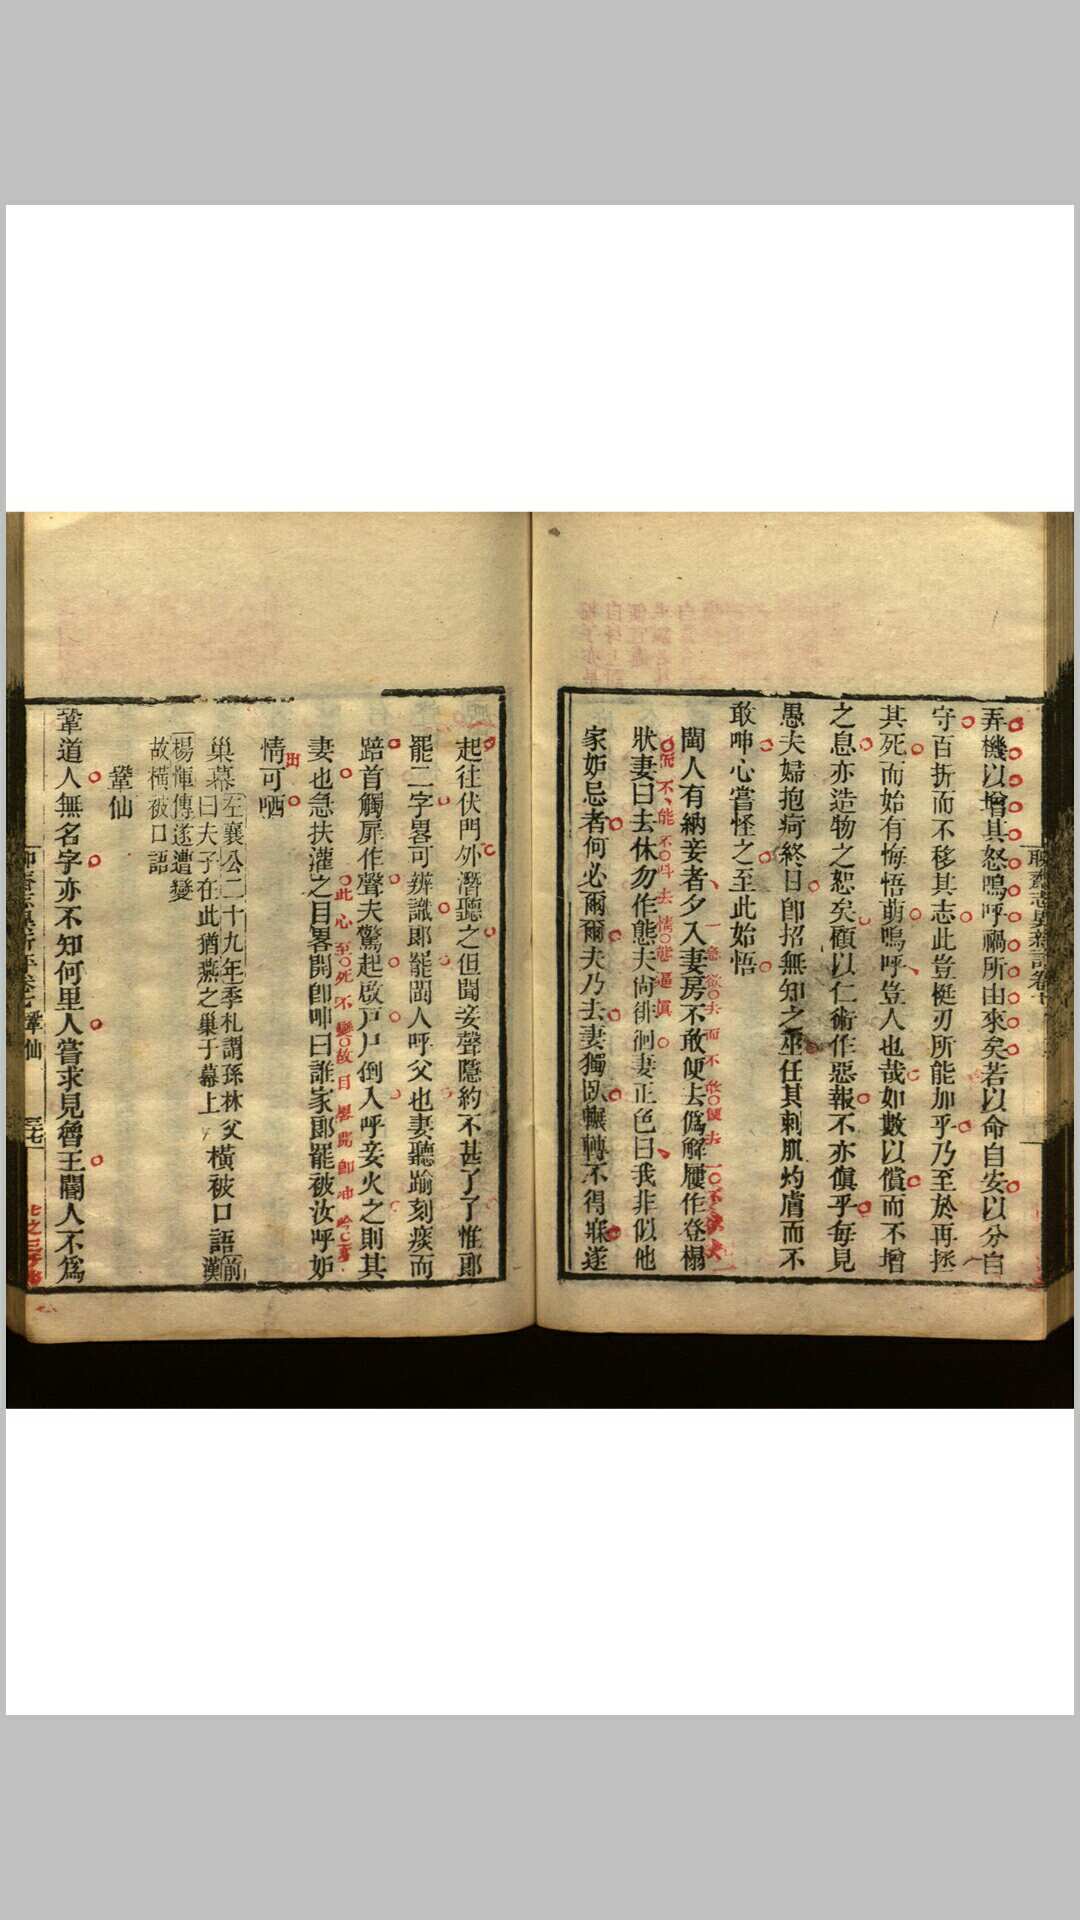 弄機以增其怒嗚呼禍所由來矣若以命自安以分自
守百折而不移其志此豈梃刃所能加乎乃至於再拯
其死而始有悔悟萌嗚呼豈人也哉如數以償而不增
之息亦造物之恕矣顧以仁術作惡報不亦傎乎每見
愚夫婦抱疴終日卽招無知之巫任其刺肌灼膚而不
敢呻心嘗怪之至此始悟
閩人有納妾者夕入妻房不敢便去偽解屨作登榻
狀妻曰去休勿作態夫尙徘徊妻正色曰我非似他
家妒忌者何必爾爾夫乃去妻獨臥輾轉不得寐遂
起往伏門外潛聽之但聞妾聲隱約不甚了了惟郞
罷二字畧可辨識郞罷閩人呼父也妻聽踰刻痰而
踣首觸扉作聲夫驚起啟戶尸倒入呼妾火之則其
妻也急扶灌之目畧開卽呻曰誰家郞罷被汝呼妒
情可哂
巢幕
左襄公二十九年季札謂孫林父
曰夫子在此猶燕之巢于幕上
橫被口語
前漢
楊惲傳遂遭變
故橫被口語
鞏仙
鞏道人無名字亦不知何里人嘗求見魯王閽人不爲
鞏仙